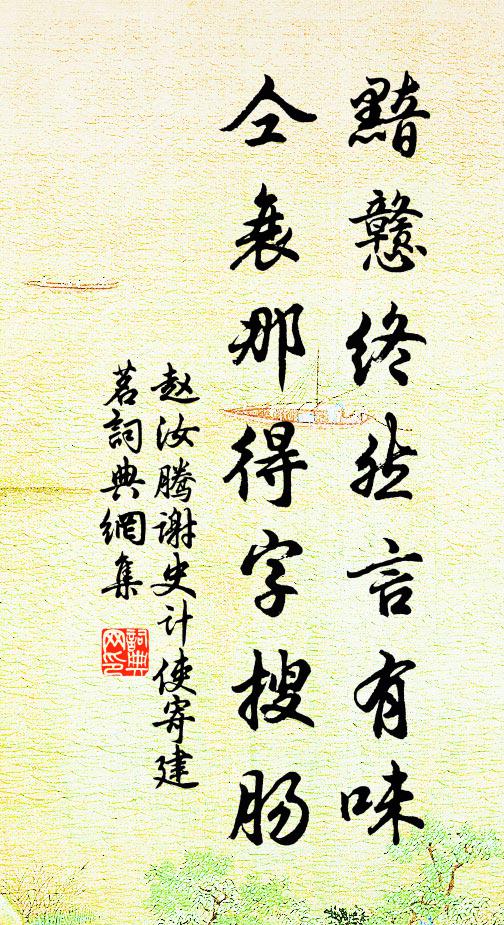 黯戆终然言有味
仝衰那得字搜肠
赵汝腾谢史计使寄建
茗詞典網集
詞典网印